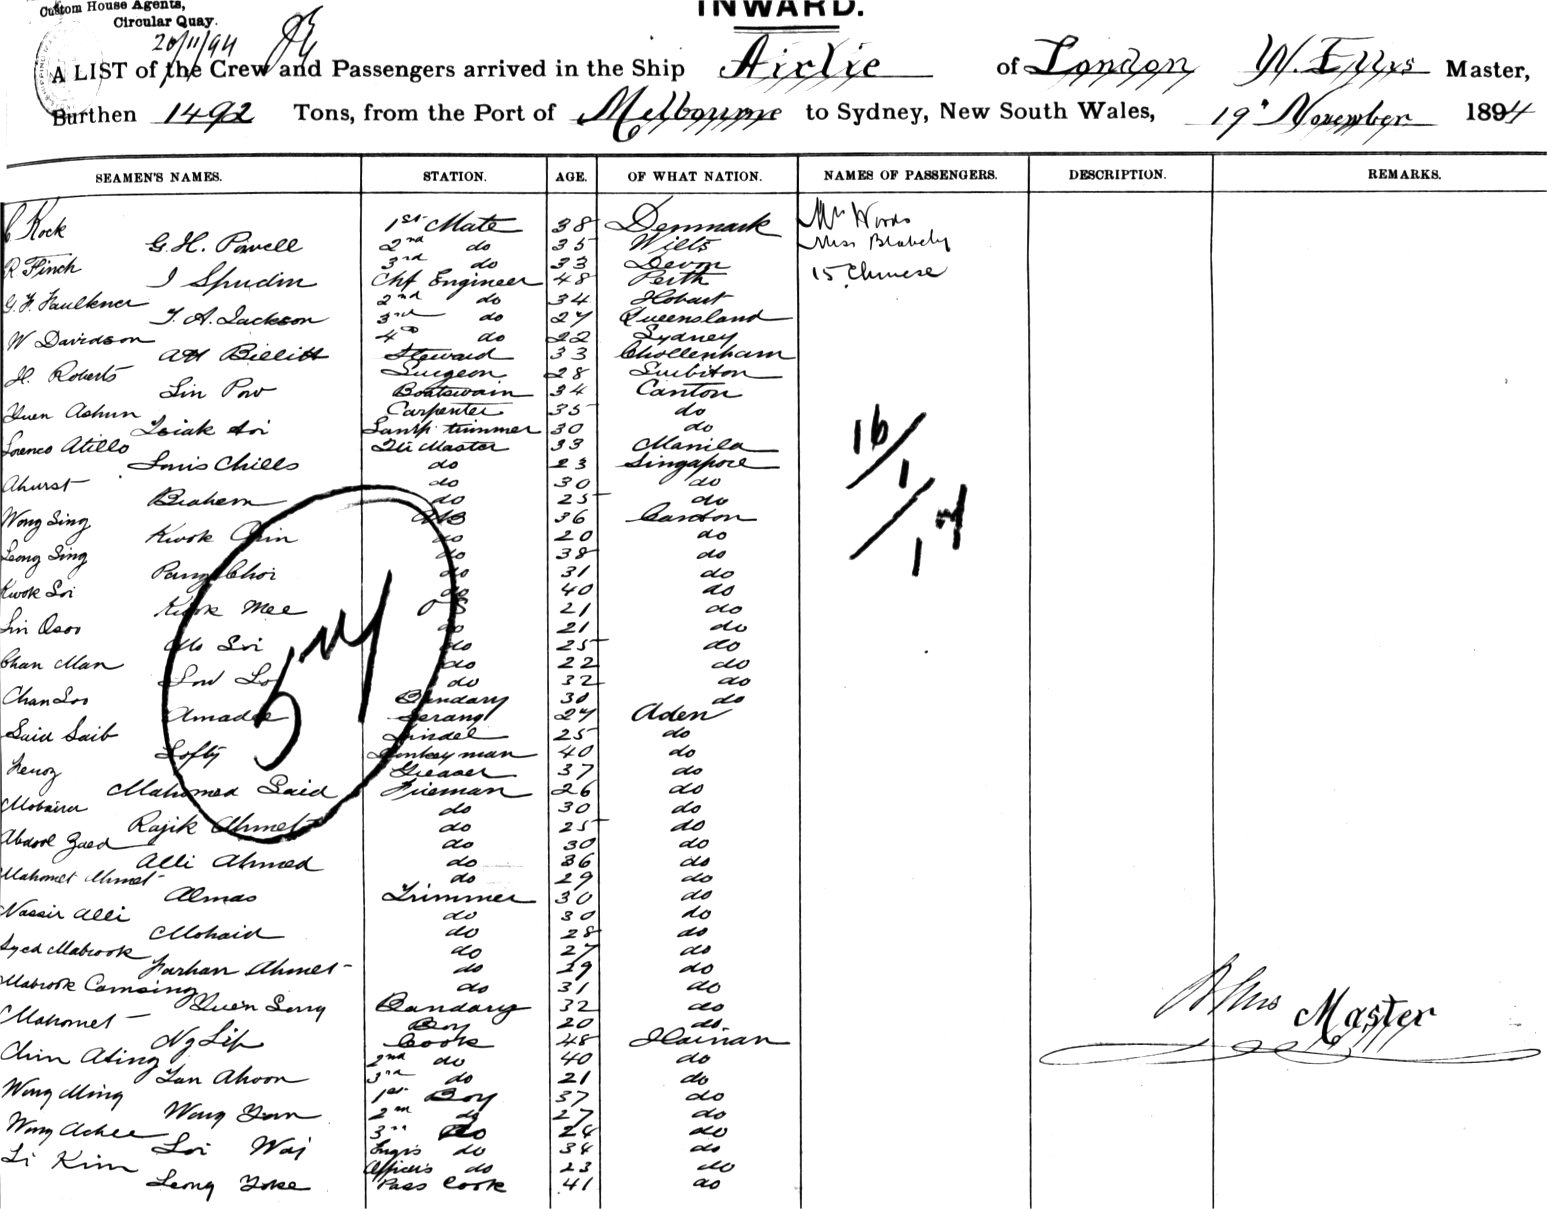 Custom House Agents,
Circular Quay.
INWARD.
20/11/94
A LIST of the Crew and Passengers arrived in the Ship Airlie of London W. Ellis Master,
Burthen 1492 Tons, from the Port of Melbourne to Sydney, New South Wales, 19' November 1894
SEAMEN'S NAMES. STATION. AGE. OF WHAT NATION. NAMES OF PASSENGERS. DESCRIPTION. REMARKS.
C Kock 1st Mate 38 Denmark Mr Woods
G. H. Powell 2nd do 35 Wilts Miss Blakely
R Finch 3rd do 33 Devon 15 Chinese
J Spudin Chf Engineer 48 Perth
G. F. Faulkner 2nd do 34 Hobart
T. A. Jackson 3rd do 27 Queensland
W Davidson 4th do 22 Sydney
AH Billitt Steward 33 Chollenham
H. Roberts Surgeon 28 Surbiton
Lin Pow Boatswain 34 Canton
Yuen Ashun Carpenter 35 do
Tsiak Loi Lamp trimmer 30 do
Lorenco Atillo Qr Master 33 Manila
Louis Chills do 23 Singapore
Ahurst do 30 do
Brahem do 25 do
Wong Sing AB 36 Canton
Kwok Chin do 20 do
Leong Sing do 38 do
Pang Choi do 31 do
Kwok Soi do 40 do
Kwok Mee OS 21 do
Lin Qsoo do 21 do
Mo Soi do 25 do
Chan Man do 22 do
Low Lo do 32 do
Chan Loo Bandary 30 do
Amadee Serang 27 Aden
Said Saib Tindel 25 do
Lofty Donkeyman 40 do
Greaser 37 do
Mahomed Said Fireman 26 do
Mobairu do 30 do
Rajik Ahmet do 25 do
Abdool Zaed do 30 do
Alli Ahmed do 36 do
Mahomet Ahmet do 29 do
Almas Trimmer 30 do
Nassir Alli do 30 do
Mohaid do 28 do
Syed Mabrook do 27 do
Farhan Ahmet do 29 do
Mabrook Comsing do 31 do
Yuen Song Bandary 32 do
Mahomet Boy 20 do
Ng Lip Cook 48 Hainan
Chin Ating 2nd do 40 do
Tan Ahoon 3rd do 21 do
Wong Ming 1st Boy 37 do
Wong Yan 2nd do 27 do
Wong Achee 3rd do 24 do
Loi Wai Engrs do 34 do
Li Kim Officers do 23 do
Leong Yoke Pass Cook 41 do
16/1/12
54
W Ellis Master